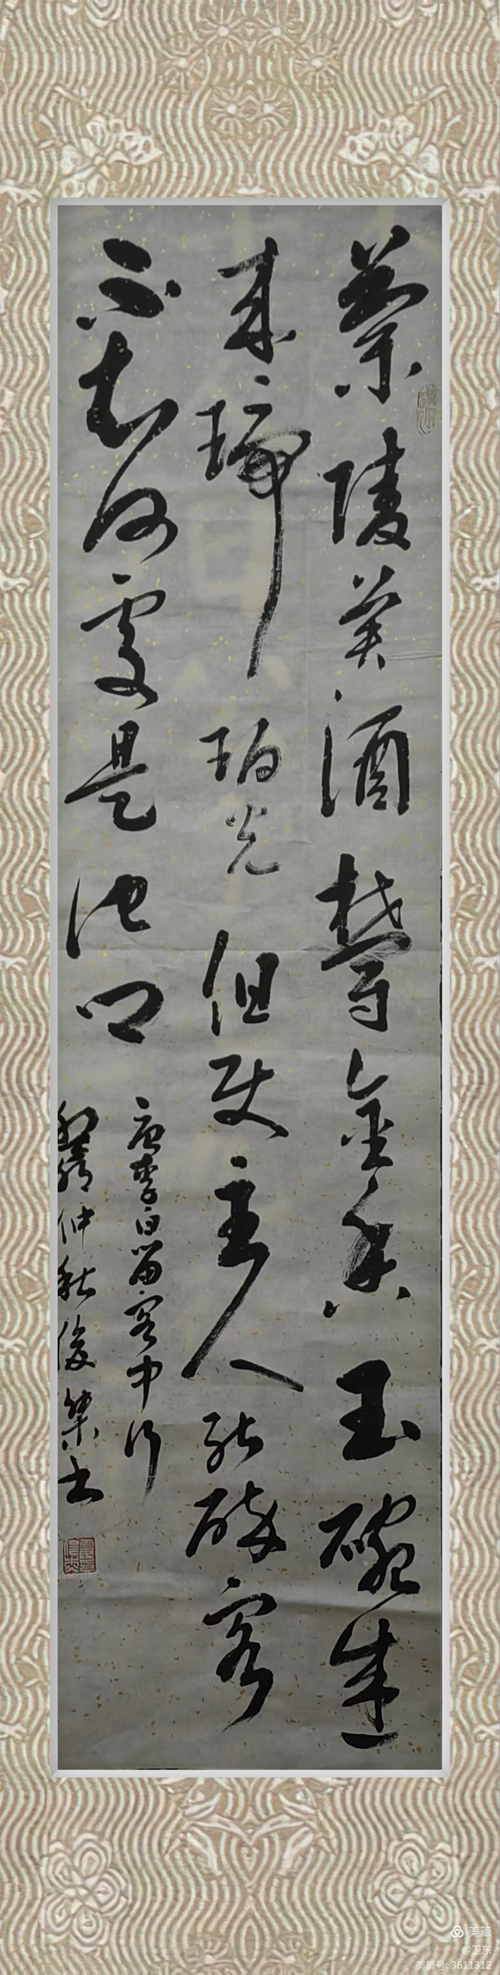 蘭陵美酒欝金香玉碗盛
来琥珀光但使主人能醉客
不知何處是他乡
唐李白客中行
仲秋俊傑书
美篇
@卫东
美篇号: 3611312